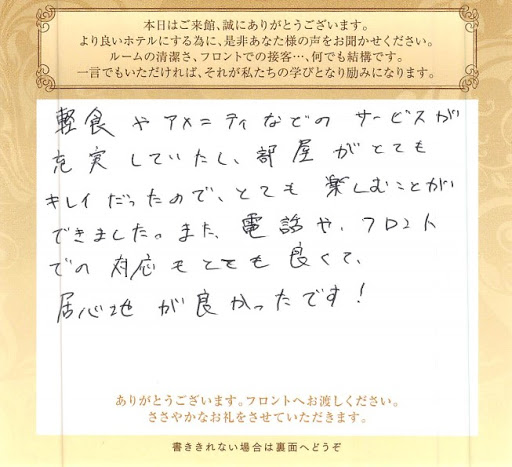 本日はご来館、誠にありがとうございます。
より良いホテルにする為に、是非あなた様の声をお聞かせください。
ルームの清潔さ、フロントでの接客…、何でも結構です。
一言でもいただければ、それが私たちの学びとなり励みになります。
軽食やアメニティなどのサービスが
充実していたし、部屋がとても
キレイだったので、とても楽しむことが
できました。また、電話や、フロント
での対応もとても良くて、
居心地が良かったです!
ありがとうございます。フロントへお渡しください。
ささやかなお礼をさせていただきます。
書ききれない場合は裏面へどうぞ